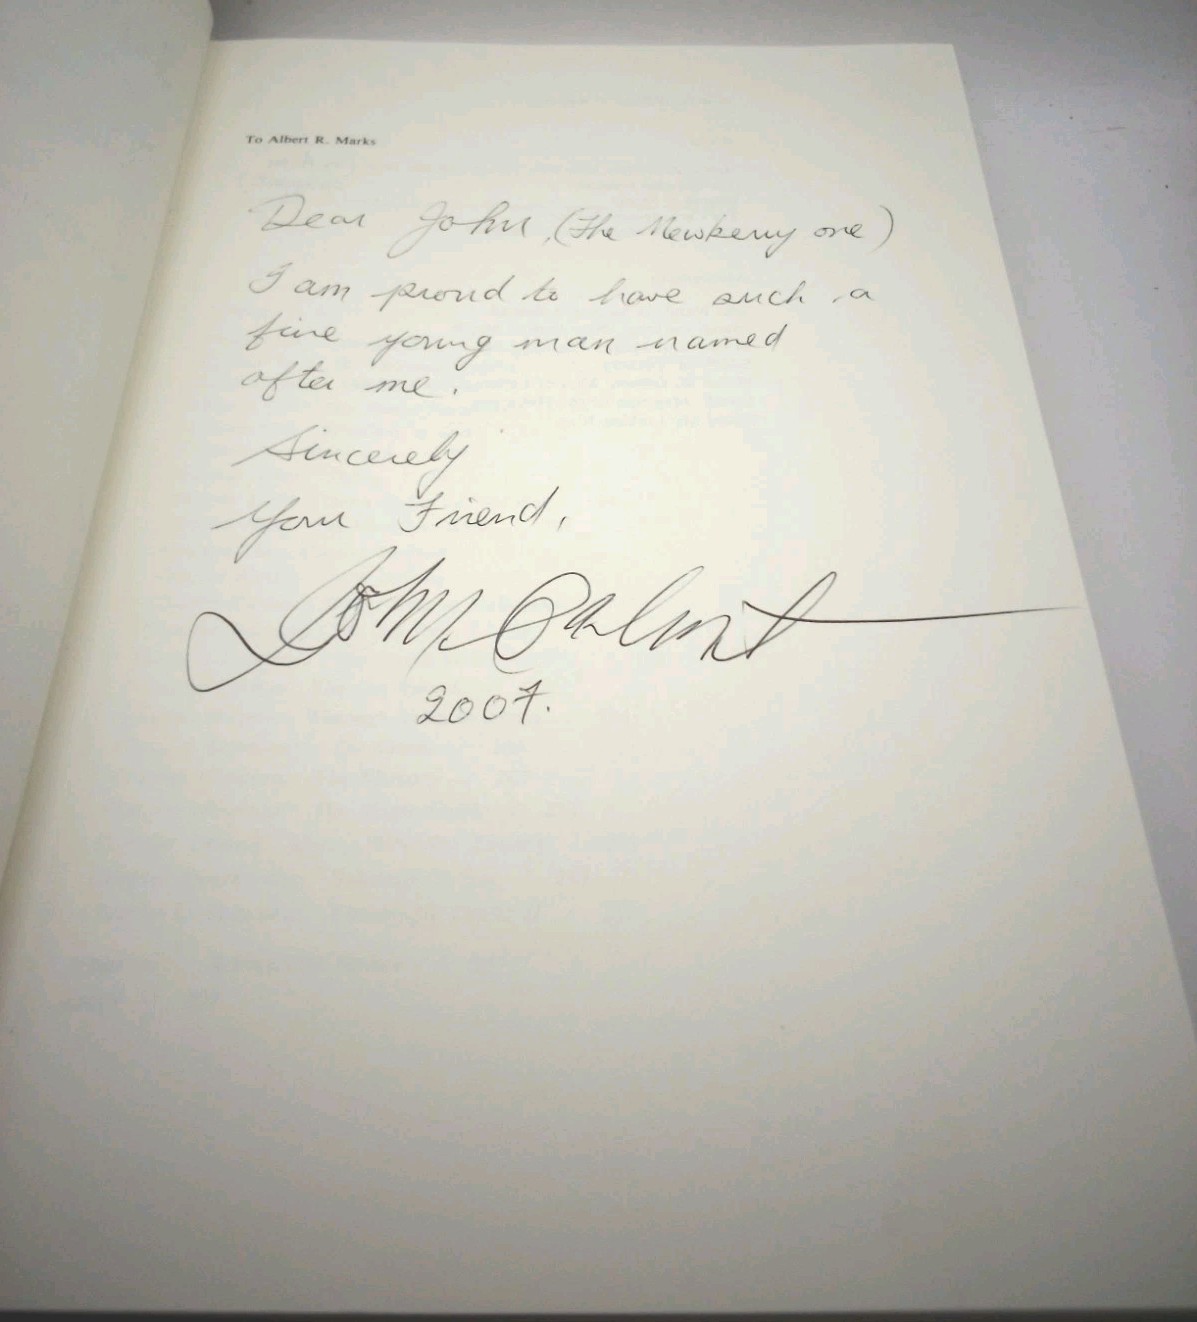 To Albert R. Marks
Dear John, (The Newberry one)
I am proud to have such a
fine young man named
after me.
Sincerely
Your Friend,
John
2007.